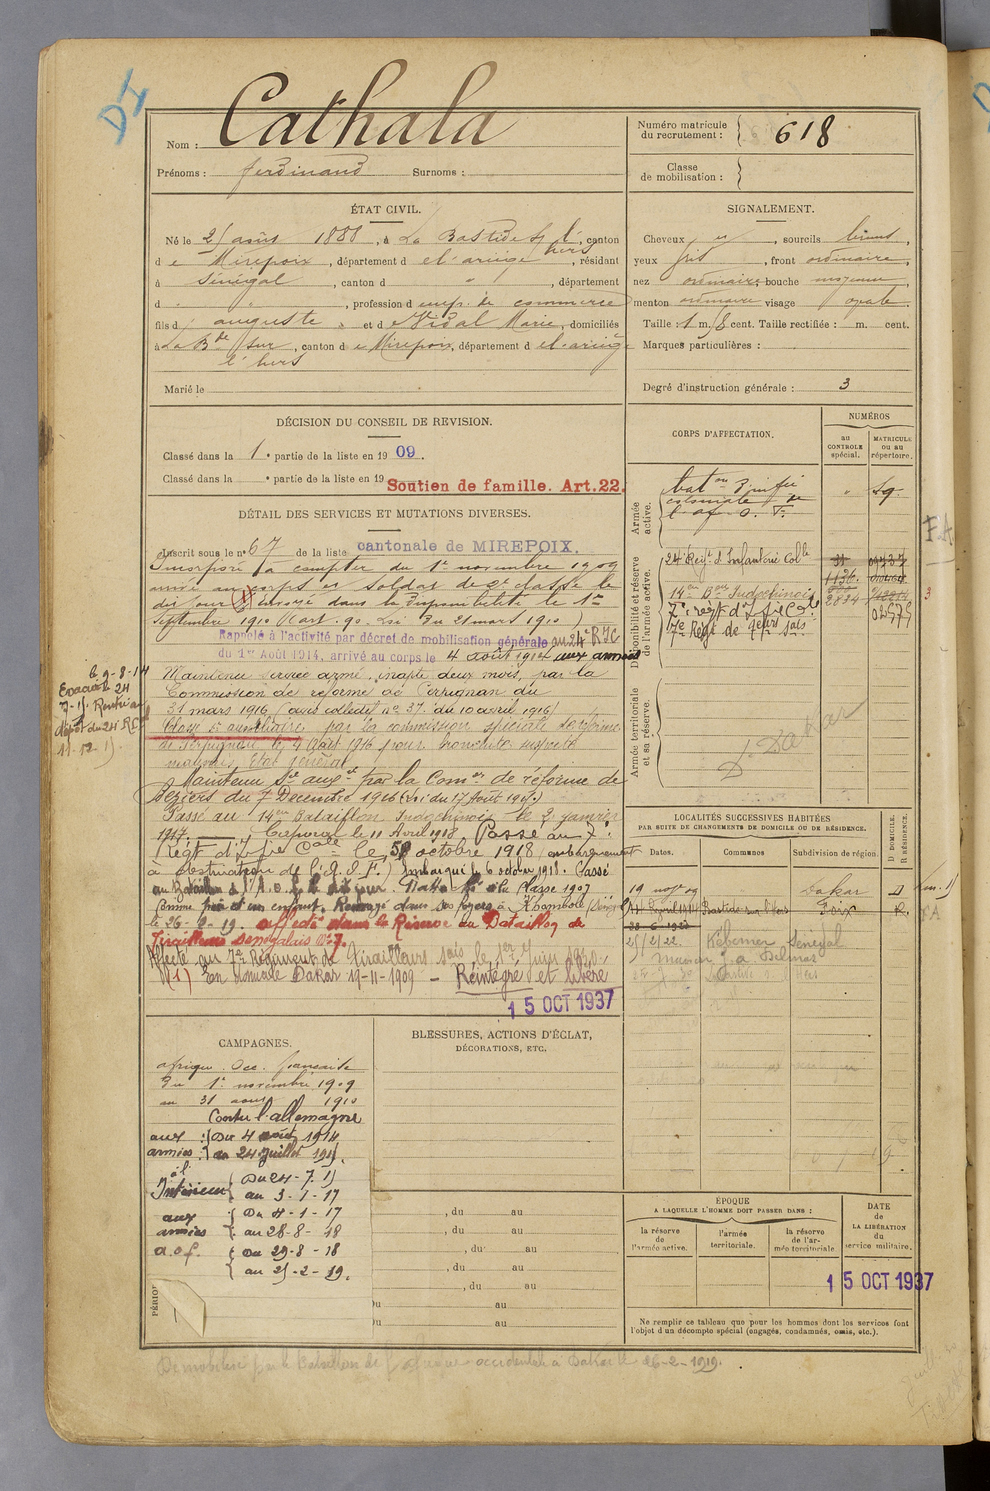 DI
Nom : Cathala
Prénoms : Ferdinand Surnoms :
Numéro matricule du recrutement : 618
Classe de mobilisation :
ÉTAT CIVIL.
Né le 25 août 1888, à La Bastide s/ l'hers, canton
de Mirepoix, département de l'ariège, résidant
à Sénégal, canton d " , département
d " , profession d'emp. de commerce
fils d' auguste et de Vidal Marie, domiciliés
à La Bde sur l'hers, canton de Mirepoix, département de l'ariège
Marié le
SIGNALEMENT.
Cheveux et , sourcils bruns,
yeux gris , front ordinaire,
nez ordinaire, bouche moyenne,
menton ordinaire visage ovale.
Taille : 1 m. 58 cent. Taille rectifiée : m. cent.
Marques particulières :
Degré d'instruction générale : 3
DÉCISION DU CONSEIL DE REVISION.
Classé dans la 1e partie de la liste en 1909.
Classé dans la e partie de la liste en 19
Soutien de famille. Art. 22.
DÉTAIL DES SERVICES ET MUTATIONS DIVERSES.
Inscrit sous le n° 67 de la liste cantonale de MIREPOIX.
Incorporé à compter du 1er novembre 1909
arrivé au corps et soldat de 2e classe le
dit jour (1) envoyé dans la disponibilité le 1er
septembre 1910 (art. 90. Loi du 21 mars 1910)
Rappelé à l'activité par décret de mobilisation générale au 24e RIC
du 1er Août 1914, arrivé au corps le 4 août 1914 aux armées
le 9-8-14
Evacué le 24
7-15. Rentré au
dépôt du 24 RCol
Maintenu service armé, inapte deux mois, par la
Commission de réforme de Perpignan du
31 mars 1916 (avis collectif n° 37. du 10 avril 1916)
Classé sce auxiliaire par la commission spéciale de réforme
de Perpignan le 4 Août 1916 pour bronchite suspecte
mauvais Etat général
Maintenu Sce auxre par la Comon de réforme de
Béziers du 7 Décembre 1916 (Loi du 17 Août 1915)
Passé au 14e Bataillon Indochinois le 2 janvier
1917. Caporal le 11 Avril 1918. Passé au 7e
Régt d'Ifie Cale le 5 octobre 1918 (embarquement
à destination de l'A.O.F.) Embarqué le 6 octobre 1918. Passé
au Bataillon de l'A.O.F. le dit jour. Rattaché à la Classe 1907
comme père d'un enfant. Renvoyé dans ses foyers à Khombole (Sénégal)
le 26-2-19. affecté dans la Réserve au Bataillon de
Tirailleurs Senegalais N°7.
Affecté au 7e Régiment de Tirailleurs Séais le 1er Juin 1920.
(1) En domicile Dakar 19-11-1909 — Réintégré et libéré
15 OCT 1937
CORPS D'AFFECTATION.
NUMÉROS
au CONTROLE spécial.
MATRICULE ou au répertoire.
Armée active.
Baton d'infie coloniale de l'af. O. F.
" 59.
Disponibilité et réserve de l'armée active.
24e Regit d'Infanterie Colle
14e Bon Indochinois
1136
7e régt d'Ifie Cole
2814
7e Régt de Teurs Séais
02575
Armée territoriale et sa réserve.
D. Dakar
F.A
3
LOCALITÉS SUCCESSIVES HABITÉES
PAR SUITE DE CHANGEMENTS DE DOMICILE OU DE RÉSIDENCE.
Dates. Communes Subdivision de région. D DOMICILE. R RÉSIDENCE.
19 nov 09 Dakar D
Bastide sur l'Hers Foix R.
25/2/22. Kébemer Sénégal
Maison J. a. Delmas
CAMPAGNES.
afrique Occ. francaise
du 1er novembre 1909
au 31 aout 1910
Contre l'allemagne
aux armées : Du 4 août 1914
au 24 juillet 1915.
à l'Intérieur Du 24-7. 15
au 3-1-17
aux armées Du 4-1-17
au 28-8-18
a.o.f. Du 29-8-18
au 25-2-19.
PÉRIO
BLESSURES, ACTIONS D'ÉCLAT,
DÉCORATIONS, ETC.
, du au
, du au
, du au
, du au
, du au
Du au
Du au
ÉPOQUE
A LAQUELLE L'HOMME DOIT PASSER DANS :
la réserve de l'armée active.
l'armée territoriale.
la réserve de l'armée territoriale
DATE de LA LIBÉRATION du service militaire.
15 OCT 1937
Ne remplir ce tableau que pour les hommes dont les services font
l'objet d'un décompte spécial (engagés, condamnés, omis, etc.).
Démobilisé par le Bataillon de l'afrique occidentale à Dakar le 26-2-1919.